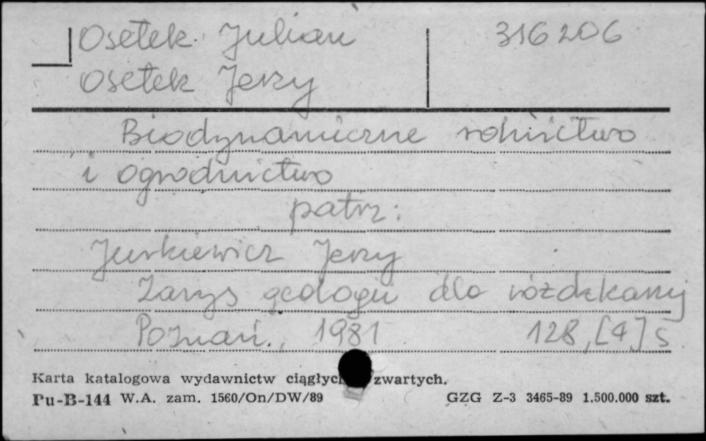 Osełek Julian 316206
Osełek Jerzy
Biodynamiczne rolnictwo
i ogrodnictwo
patrz:
Jurkiewicz Jerzy
Zarys geologii dla różdżkarzy
Poznań, 1981 128, [4] s
Karta katalogowa wydawnictw ciągłych zwartych.
Pu-B-144 W.A. zam. 1560/On/DW/89 GZG Z-3 3465-89 1.500.000 szt.